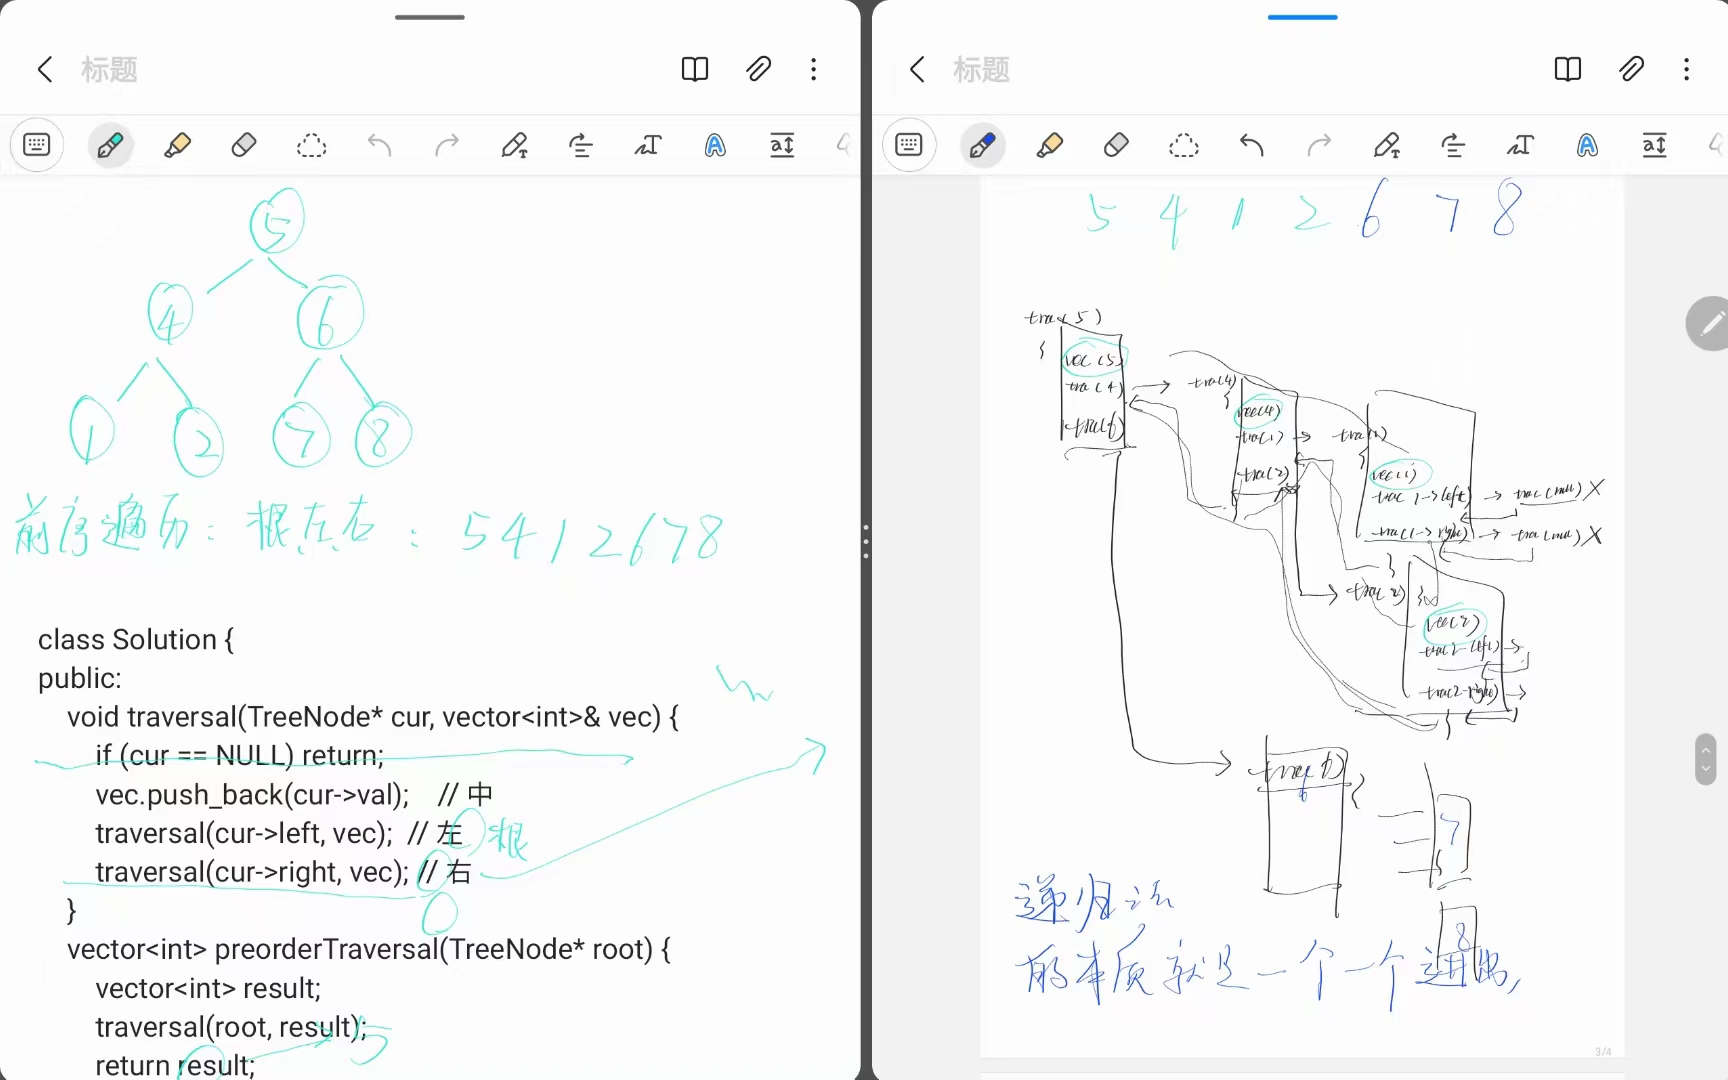 标题
5
4
6
1
2
7
8
前序遍历：根左右：5 4 1 2 6 7 8
class Solution {
public:
void traversal(TreeNode* cur, vector<int>& vec) {
if (cur == NULL) return;
vec.push_back(cur->val); // 中
traversal(cur->left, vec); // 左
根
traversal(cur->right, vec); // 右
}
vector<int> preorderTraversal(TreeNode* root) {
vector<int> result;
traversal(root, result);
5
return result;
标题
5 4 1 2 6 7 8
tra(5)
{
vec(5)
tra(4)
tra(4)
{
vec(4)
tra(1)
tra(2)
tra(1)
{
vec(1)
trac 1->left)
trac(null) X
trac(1->right)
trac(null) X
}
trac(2)
vec(2)
trac2-left)
trac2-right)
}
6
{
7
8
递归法
的本质就是一个一个进出,
3/4